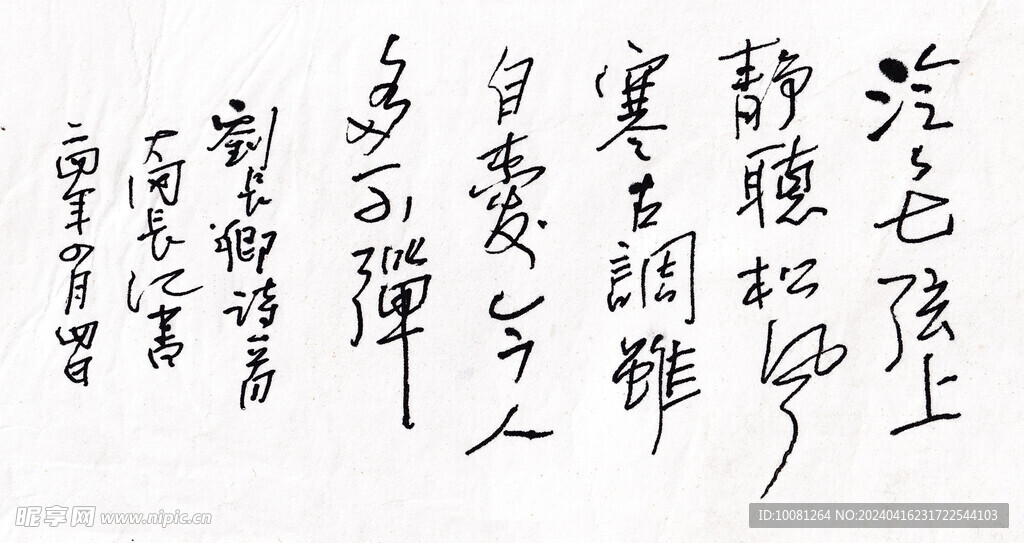 泠々七弦上
静聽松風
寒古調雖
自愛今人
多不彈
劉長卿詩一首
大河長江書
二四年四月四日
昵享网 www.nipic.cn
ID:10081264 NO:20240416231722544103